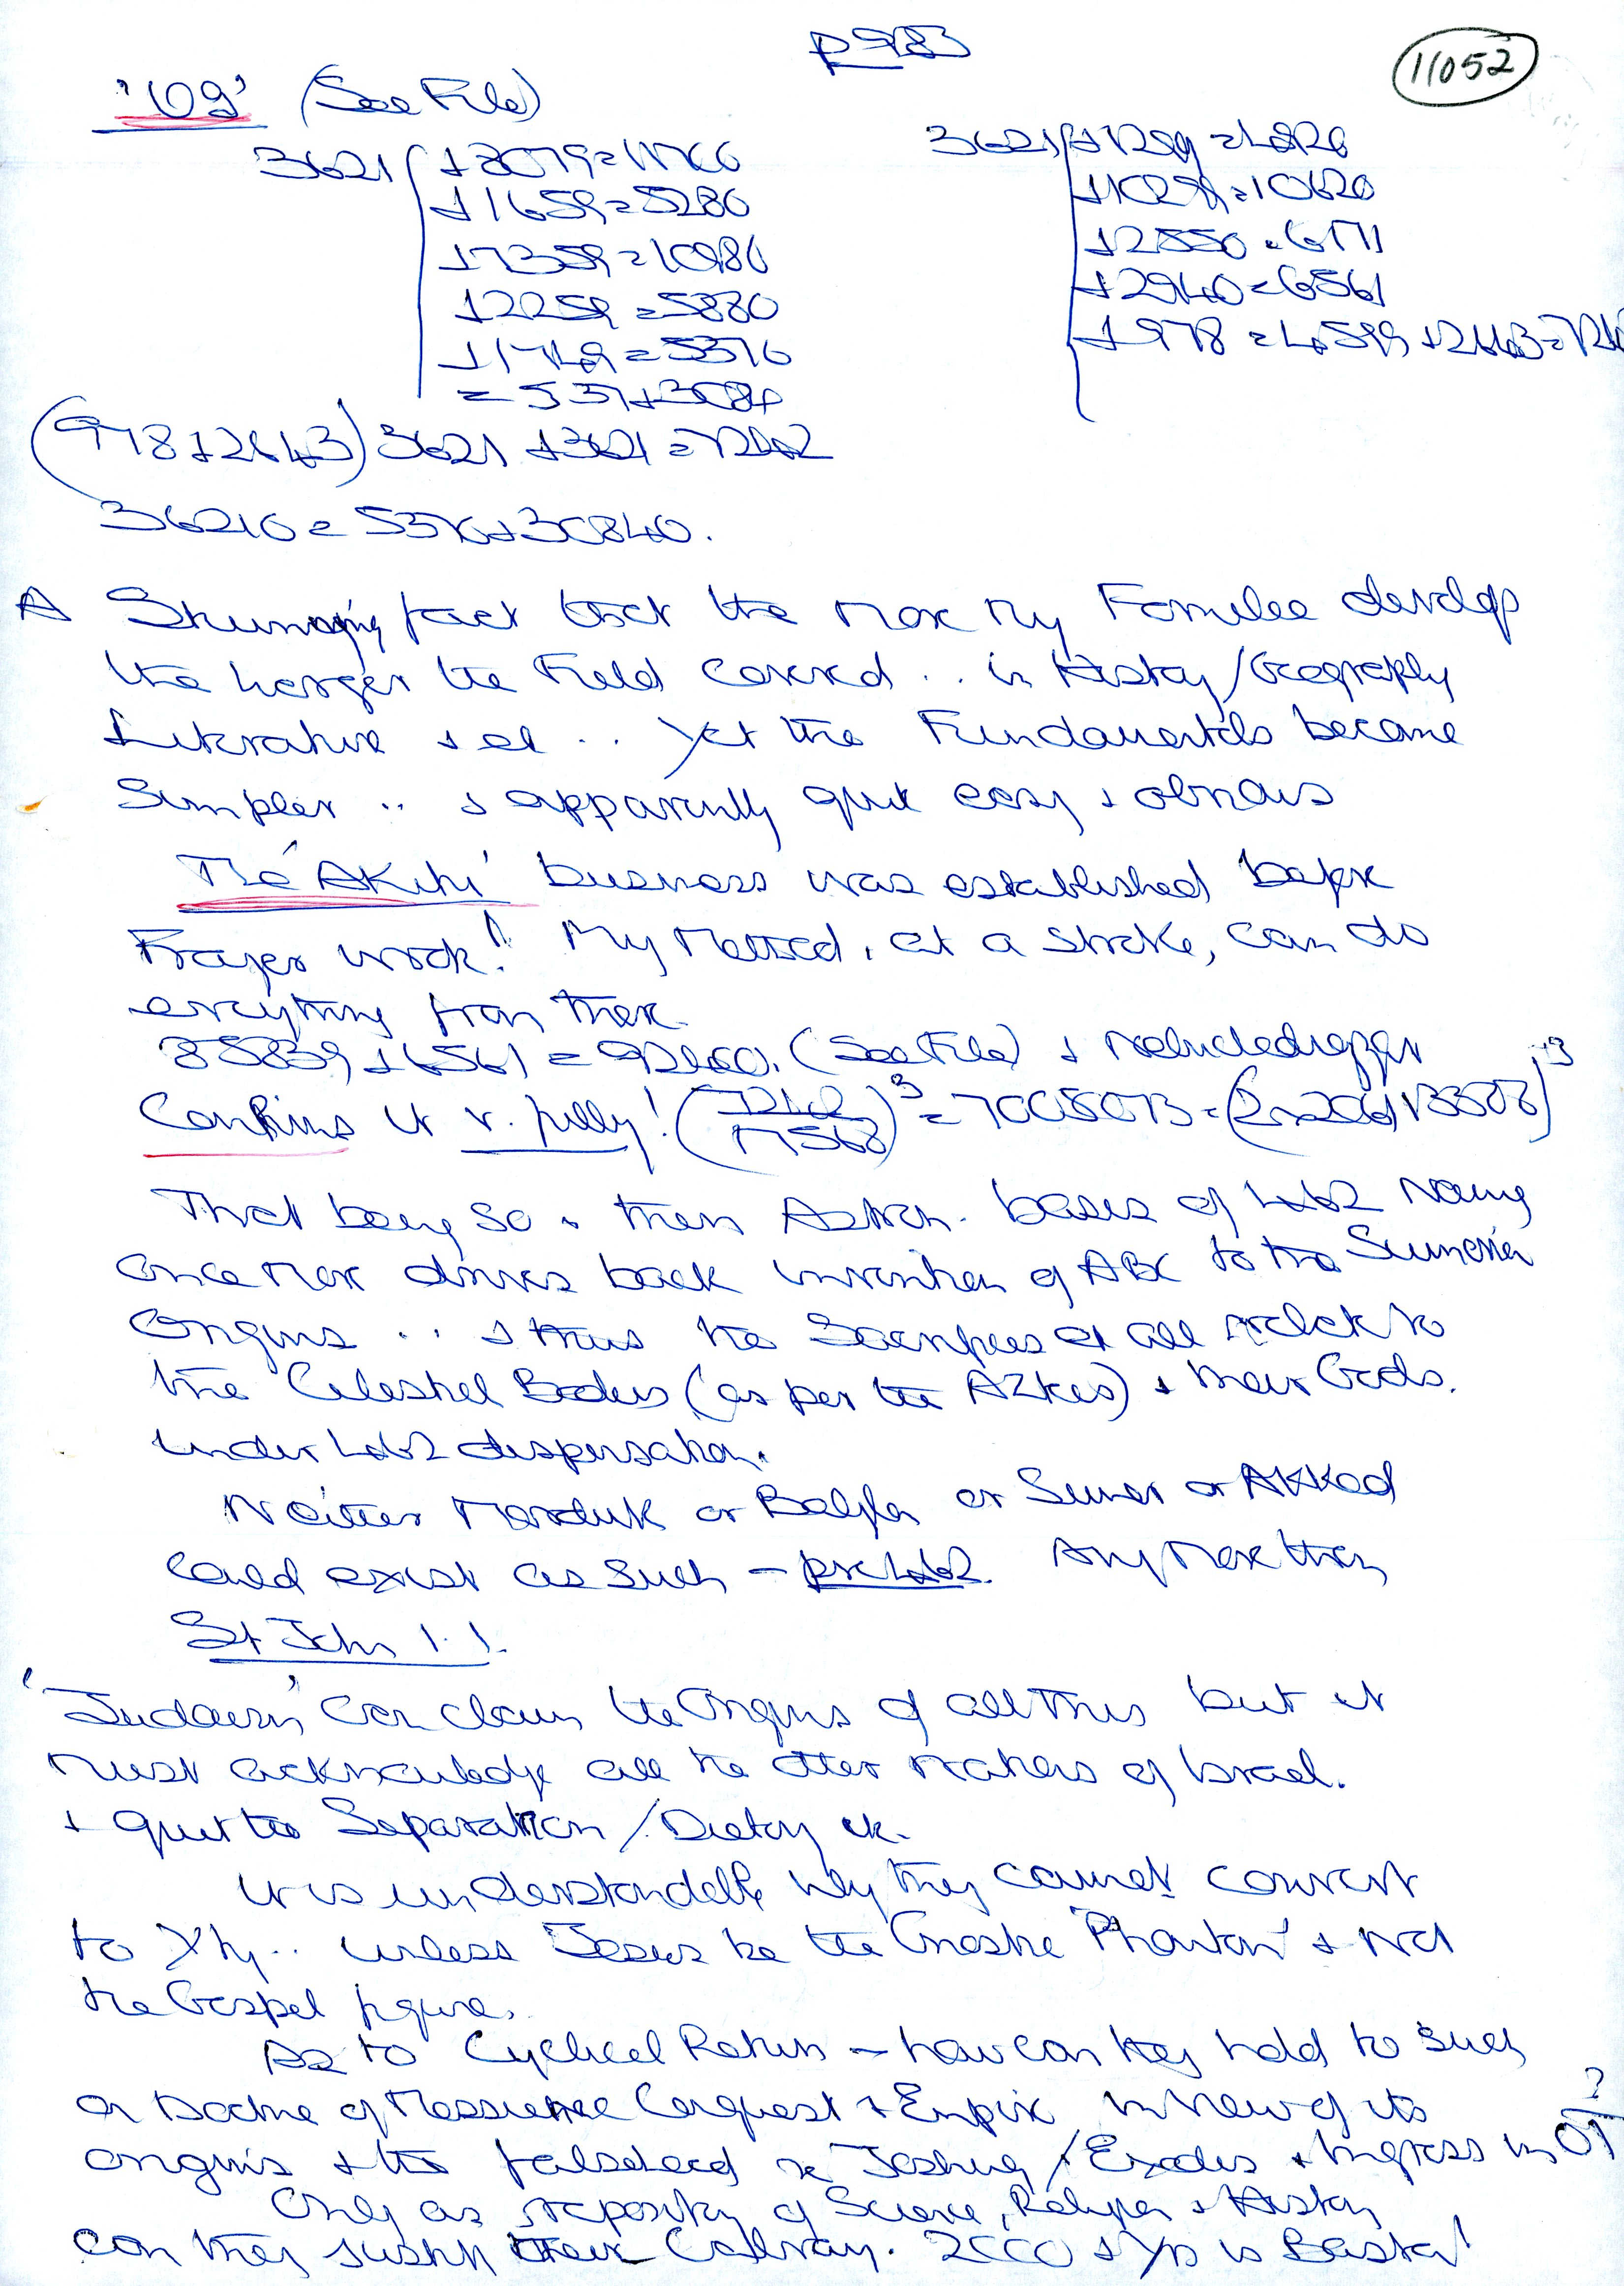 p983
11052
'Og' (See File)
3621 +8079=11700
+1659=5280
+7359=10980
+2259=5880
+1749=5370
= 537+3084
3621 +1299=4920
+2550=6171
+2940=6561
+978=4599+2643=
(978+2643) 3621+3621=7242
36210=5370+30840.
A Stunning fact that the more my Formulae develop
the larger the Field covered .. in History/Geography
Literature + al .. yet the Fundamentals become
Simpler .. + apparently quite easy + obvious
The 'Akitu' business was established before
Frazer wrote! My Method, at a stroke, can do
everything from there
85839+6561=92400. (See File) +
Confirms it v. fully!
That being so + then Astron. bases of Naming
once more drives back invention of ABC to the Sumerian
Origins .. + thus the Sacrifices et all relate to
the Celestial Bodies (as per the Aztecs) + their Gods.
under dispensation.
Neither Marduk or or Sumer or Akkad
could exist as such – Any more then
St John 1.1.
'Judaism' can claim the Origins of all this but it
must acknowledge all the other makers of Israel.
+ quit the Separation/Dietary etc.
It is understandable why they cannot convert
to Xty.. unless Jesus be the Gnostic 'Phantom' + not
the Gospel figure.
As to Cyclical Return – how can they hold to such
a Doctrine of Messianic Conquest + Empire in view of its
origins + the falsehood re Joshua/Exodus + Ingress in OT?
Only as repository of Science, Religion + History
can they justify their Calvary. 2000 + yrs is